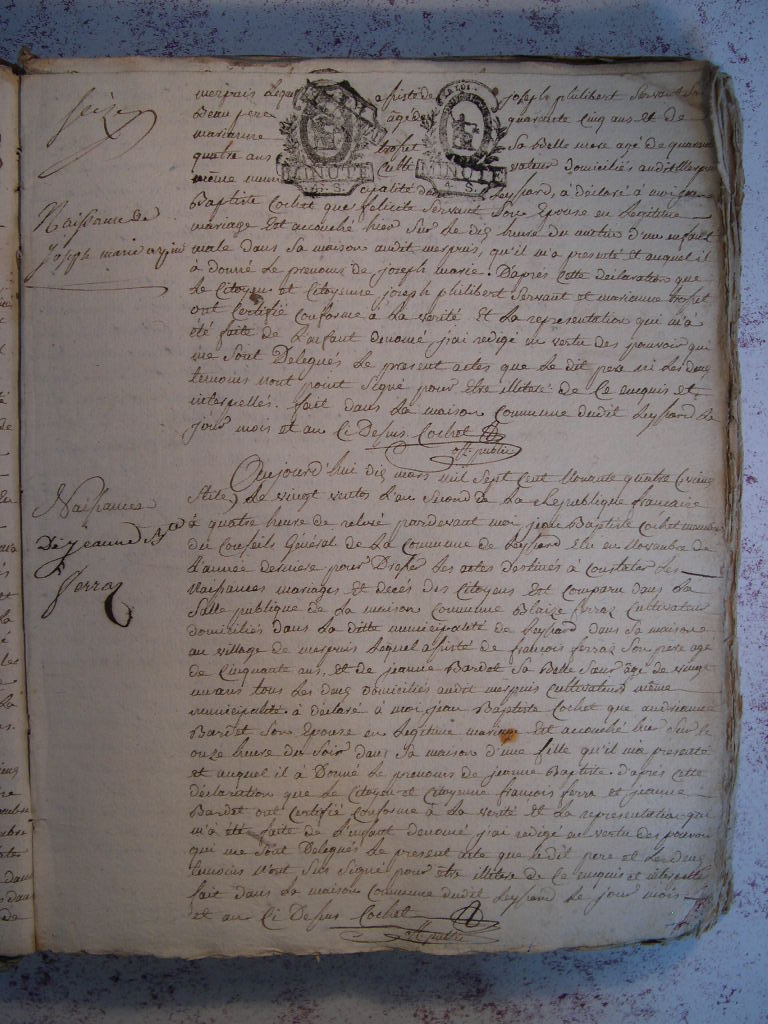 seize
merpuis lequel assisté de joseph philibert Servant son
Beau pere âgé de quarente cinq ans et de
marianne trosset Sa Belle mere agé de quarante
quatre ans Cultivateur domiciliés audit Merpuis
même municipalité de Leyssard, à déclaré à moi jean
Naissance de
Joseph marie
Baptiste Cochet que felicité Servant Son Epouse en legitime
mariage Est accouché hier Sur le dix heure du matin d'un enfant
male dans Sa maison audit merpuis, qu'il m'a presenté et auquel il
à donné Le prenoms de joseph marie. D'après Cette déclaration que
Le Citoyen et Citoyenne joseph philibert Servant et marianne trosset
ont Certifié Conforme à La verité Et La representation qui m'a
été faite de L'enfant denomé j'ai redigé en vertu des pouvoir qui
me Sont Delegués Le present actes que Le dit pere ni Les deux
temoins n'ont point Signé pour Etre illiteré de Ce enquis et
interpellés. fait dans La maison Commune dudit Leyssard Le
jour mois et an Ci Dessus Cochet
off. public
Naissances
De jeanne Bte
ferraz
Aujourd'hui dix mars mil Sept Cent Nonante quatre (vieux
Stile) Le vingt ventos L'an Second de La Republique francaise
à quatre heure de relevé pardevant moi jean Baptiste Cochet membre
du Conseils Général de La Commune de Leyssard Elu en Novembre de
L'année derniere pour Dresser Les actes destinés à Constater Les
Naissances mariages Et decès des Citoyens Est Comparu dans La
Salle publique de La maison Commune Blaize ferraz Cultivateur
domiciliés dans La ditte municipalité de Leyssard dans Sa maison
au village de merpuis Lequel assisté de françois ferraz Son pere agé
de Cinquante ans, et de jeanne Bardet Sa Belle Sœur âgé de vingt
ans tous Les deux domiciliés audit merpuis Cultivateur même
municipalité à déclaré à moi jean Baptiste Cochet que andrianne
Bardet Son Epouse en Legitime mariage Est accouché hier Sur le
onze heure du Soir dans Sa maison d'une fille qu'il ma presenté
et auquel il à Donné Le prenoms de jeanne Baptiste. d'après Cette
déclaration que Le Citoyen et Citoyenne françois ferra et jeanne
Bardet ont Certifié Conforme à La verité Et La representation qui
m'à été faite de L'enfant denomé j'ai redigé en vertu des pouvoir
qui me Sont Delegués Le present acte que Ledit pere et Les deux
temoins n'ont Sus Signé pour être illiteré de Ce enquis et interpellé
fait dans La maison Commune dudit Leyssard Le jour mois
et an Ci Dessus Cochet
off. public